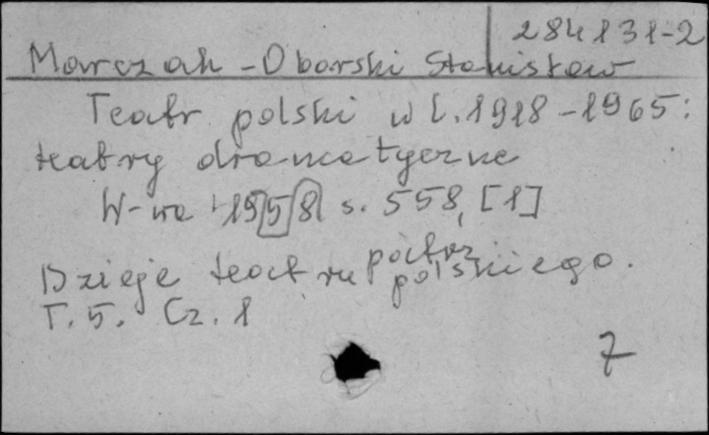 284131-2
Marczak-Oborski Stanisław
Teatr polski w l. 1918-1965:
teatry dramatyczne
W-wa 1958 s. 558, [1]
Dzieje teatru polskiego.
T. 5. Cz. 1
7